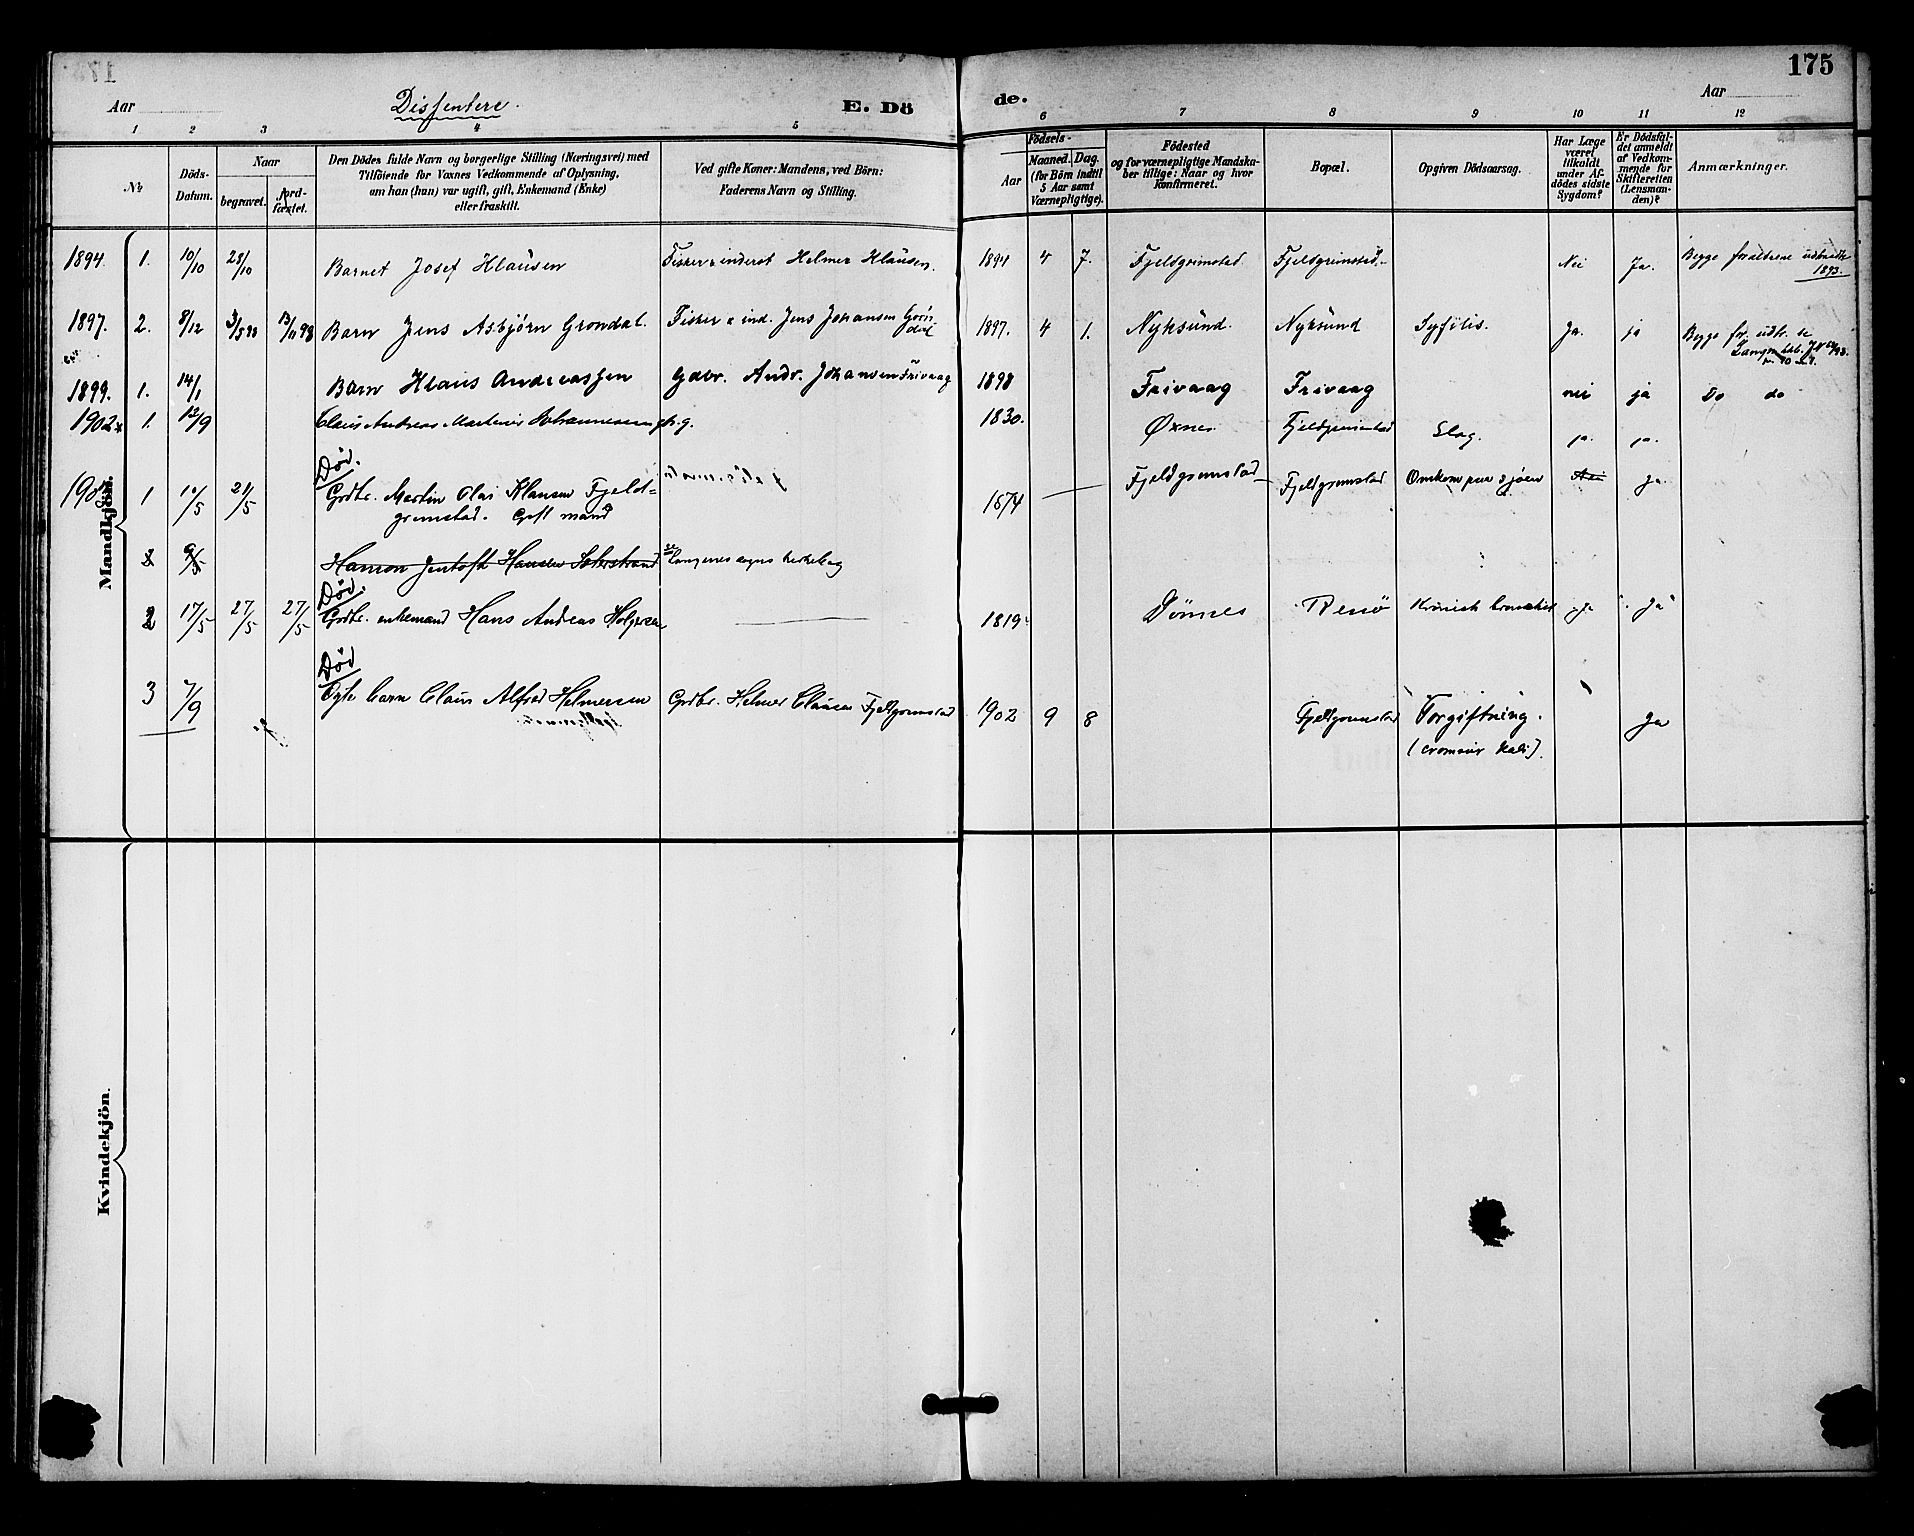 175
Aar
Dissentere.
E. Dö
de.
Aar
1 2 3 4 5 6 7 8 9 10 11 12
№
Döds-
Datum.
Naar
begravet.
Jord-
fæstet.
Den Dödes fulde Navn og borgerlige Stilling (Næringsvei) med
Tilföiende for Voxnes Vedkommende af Oplysning,
om han (hun) var ugift, gift, Enkemand (Enke)
eller fraskilt.
Ved gifte Koner: Mandens, ved Börn:
Faderens Navn og Stilling.
Födsels-
Aar
Maaned. Dag.
(for Börn indtil
5 Aar samt
Værnepligtige).
Födested
og for værnepligtige Mandska-
ber tillige: Naar og hvor
konfirmeret.
Bopæl.
Opgiven Dödsaarsag.
Har Læge
været
tilkaldt
under Af-
dödes sidste
Sygdom?
Er Dödsfal-
det anmeldt
af Vedkom-
mende for
Skifteretten
(Lensman-
den)?
Anmærkninger.
Mandkjön.
1894. 1. 10/10 28/10 Barnet Josef Klausen Fisker & inderst Helmer Klausen. 1894 4 7. Fjeldgrimstad Fjeldgrimstad. Nei Ja. Begge forældrene udtraadt
1893.
1897. 2. 8/12 3/5 98 13/11 98 Barn Jens Asbjörn Grondal. Fisker & ind. Jens Johansen Grön
dal 1897. 4 1. Nyksund. Nyksund Syfilis. Ja. ja Begge for. udtr. se
1899. 1. 14/1 Barn Klaus Andreassen Gdbr. Andr. Johansen Frivaag 1898 Frivaag Frivaag nei ja Do do
1902 1. 12/9 Claus Andreas Martinus Johannessen p.g. 1830. Øxnes Fjeldgrimstad Slag. ja. ja.
Död.
1 10/5 21/5 Grdbr. Martin Olai Klausen Fjeld-
grimstad. Gift mand 1874 Fjeldgrimstad Fjeldgrimstad Omkom paa sjöen Nei Ja.
2 9/5 Hanson Jentoft Hansen se Langenes sogns kirkebog
Död.
2 17/5 27/5 27/5 Grdbr. enkemand Hans Andreas Holgersen 1819. Dönnes Kronisk bronchit ja Ja
Död
3 7/9 Ægte barn Claus Alfred Helmersen Grdbr. Helmer Clausen Fjeldgrimstad 1902 9 8 Fjeldgrimstad Forgiftning.
(cromsur kali). Ja
Kvindekjön.